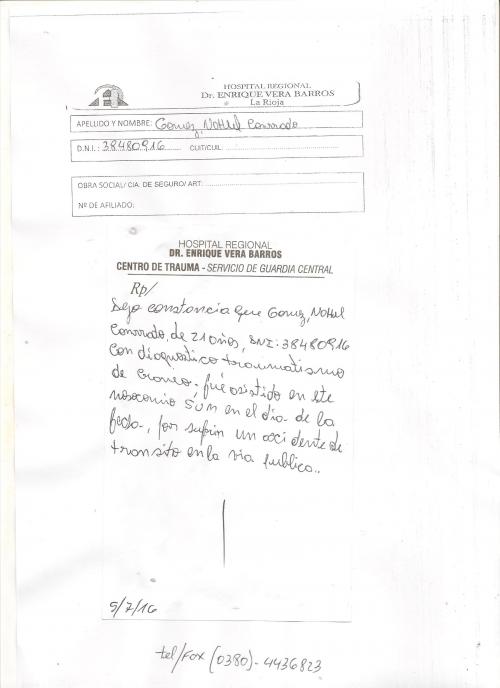 HOSPITAL REGIONAL
Dr. ENRIQUE VERA BARROS
La Rioja
APELLIDO Y NOMBRE: Gomez, Nahuel Conrrado
D.N.I.: 38480916 CUIT/CUIL:
OBRA SOCIAL/ CIA. DE SEGURO/ ART:
Nº DE AFILIADO:
HOSPITAL REGIONAL
DR. ENRIQUE VERA BARROS
CENTRO DE TRAUMA - SERVICIO DE GUARDIA CENTRAL
Rp/
Dejo constancia que Gomez, Nahuel
Conrrado, de 21 años, DNI: 38480916
Con diagnostico traumatismo
de Craneo, fué asistido en este
nosocomio en el dia de la
fecha, por sufrir un accidente de
transito en la via publica..
5/7/16
tel/Fax (0380)-4436823